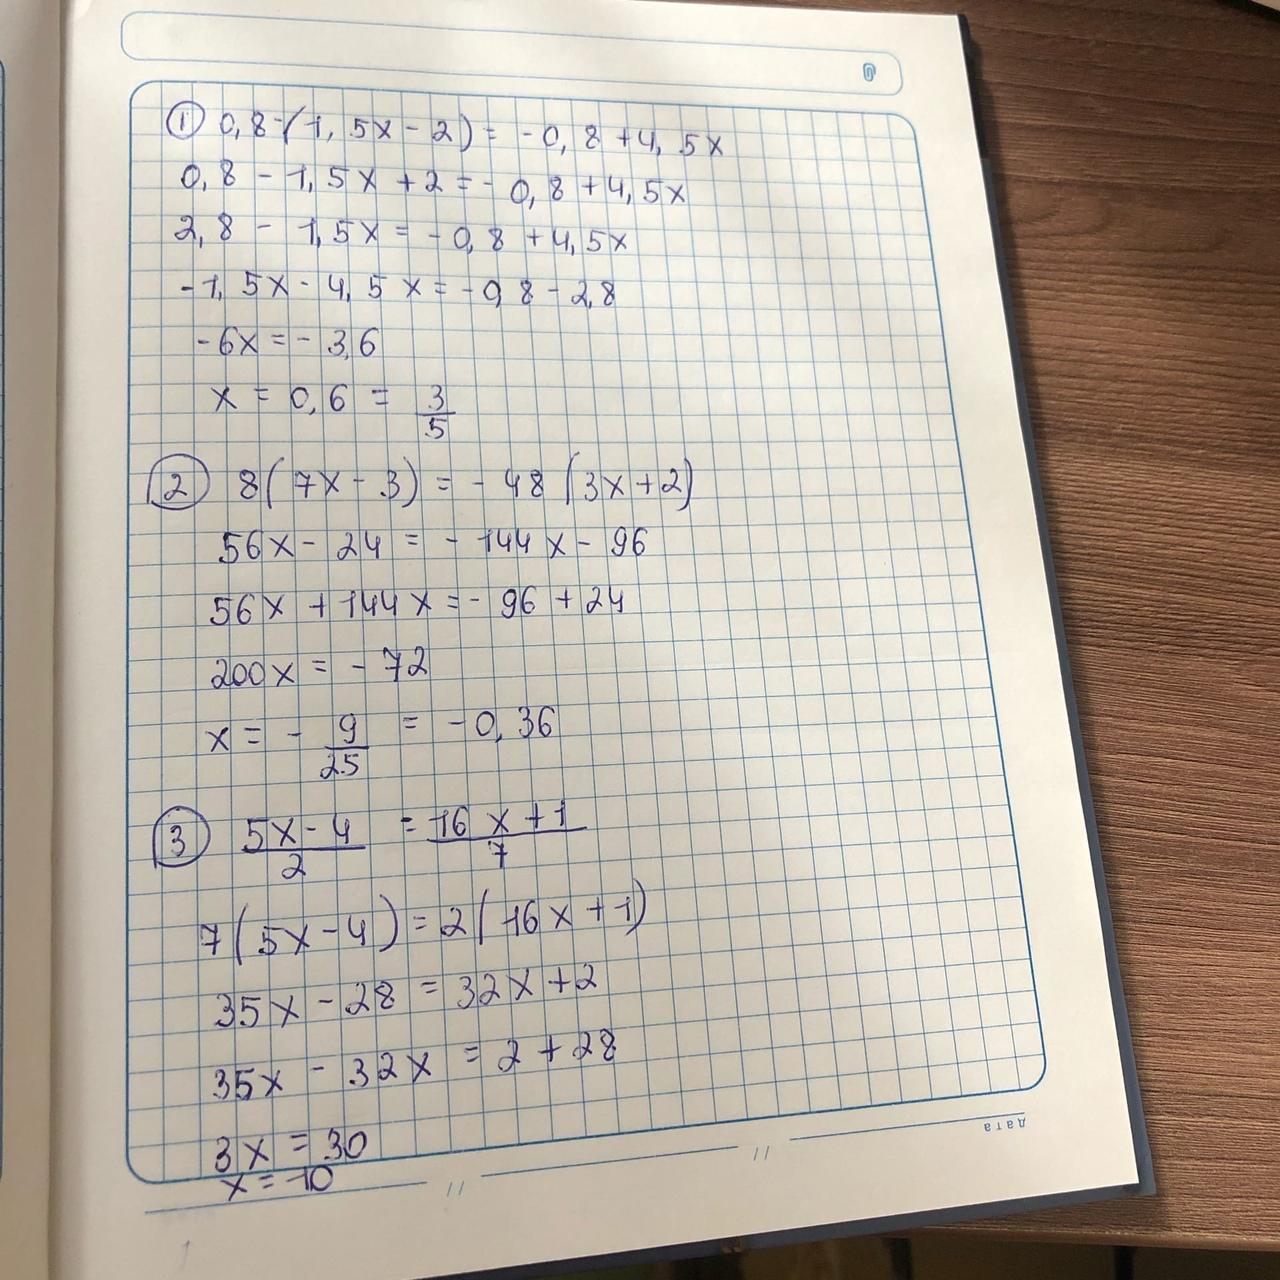 ① 0,8-(1,5x-2)= -0,8+4,5x
0,8-1,5x+2=-0,8+4,5x
2,8-1,5x=-0,8+4,5x
-1,5x-4,5x=-0,8-2,8
-6x=-3,6
x=0,6=3/5
② 8(7x-3)=-48(3x+2)
56x-24=-144x-96
56x+144x=-96+24
200x=-72
x=-9/25=-0,36
③ (5x-4)/2=(16x+1)/7
7(5x-4)=2(16x+1)
35x-28=32x+2
35x-32x=2+28
3x=30
x=10
дата